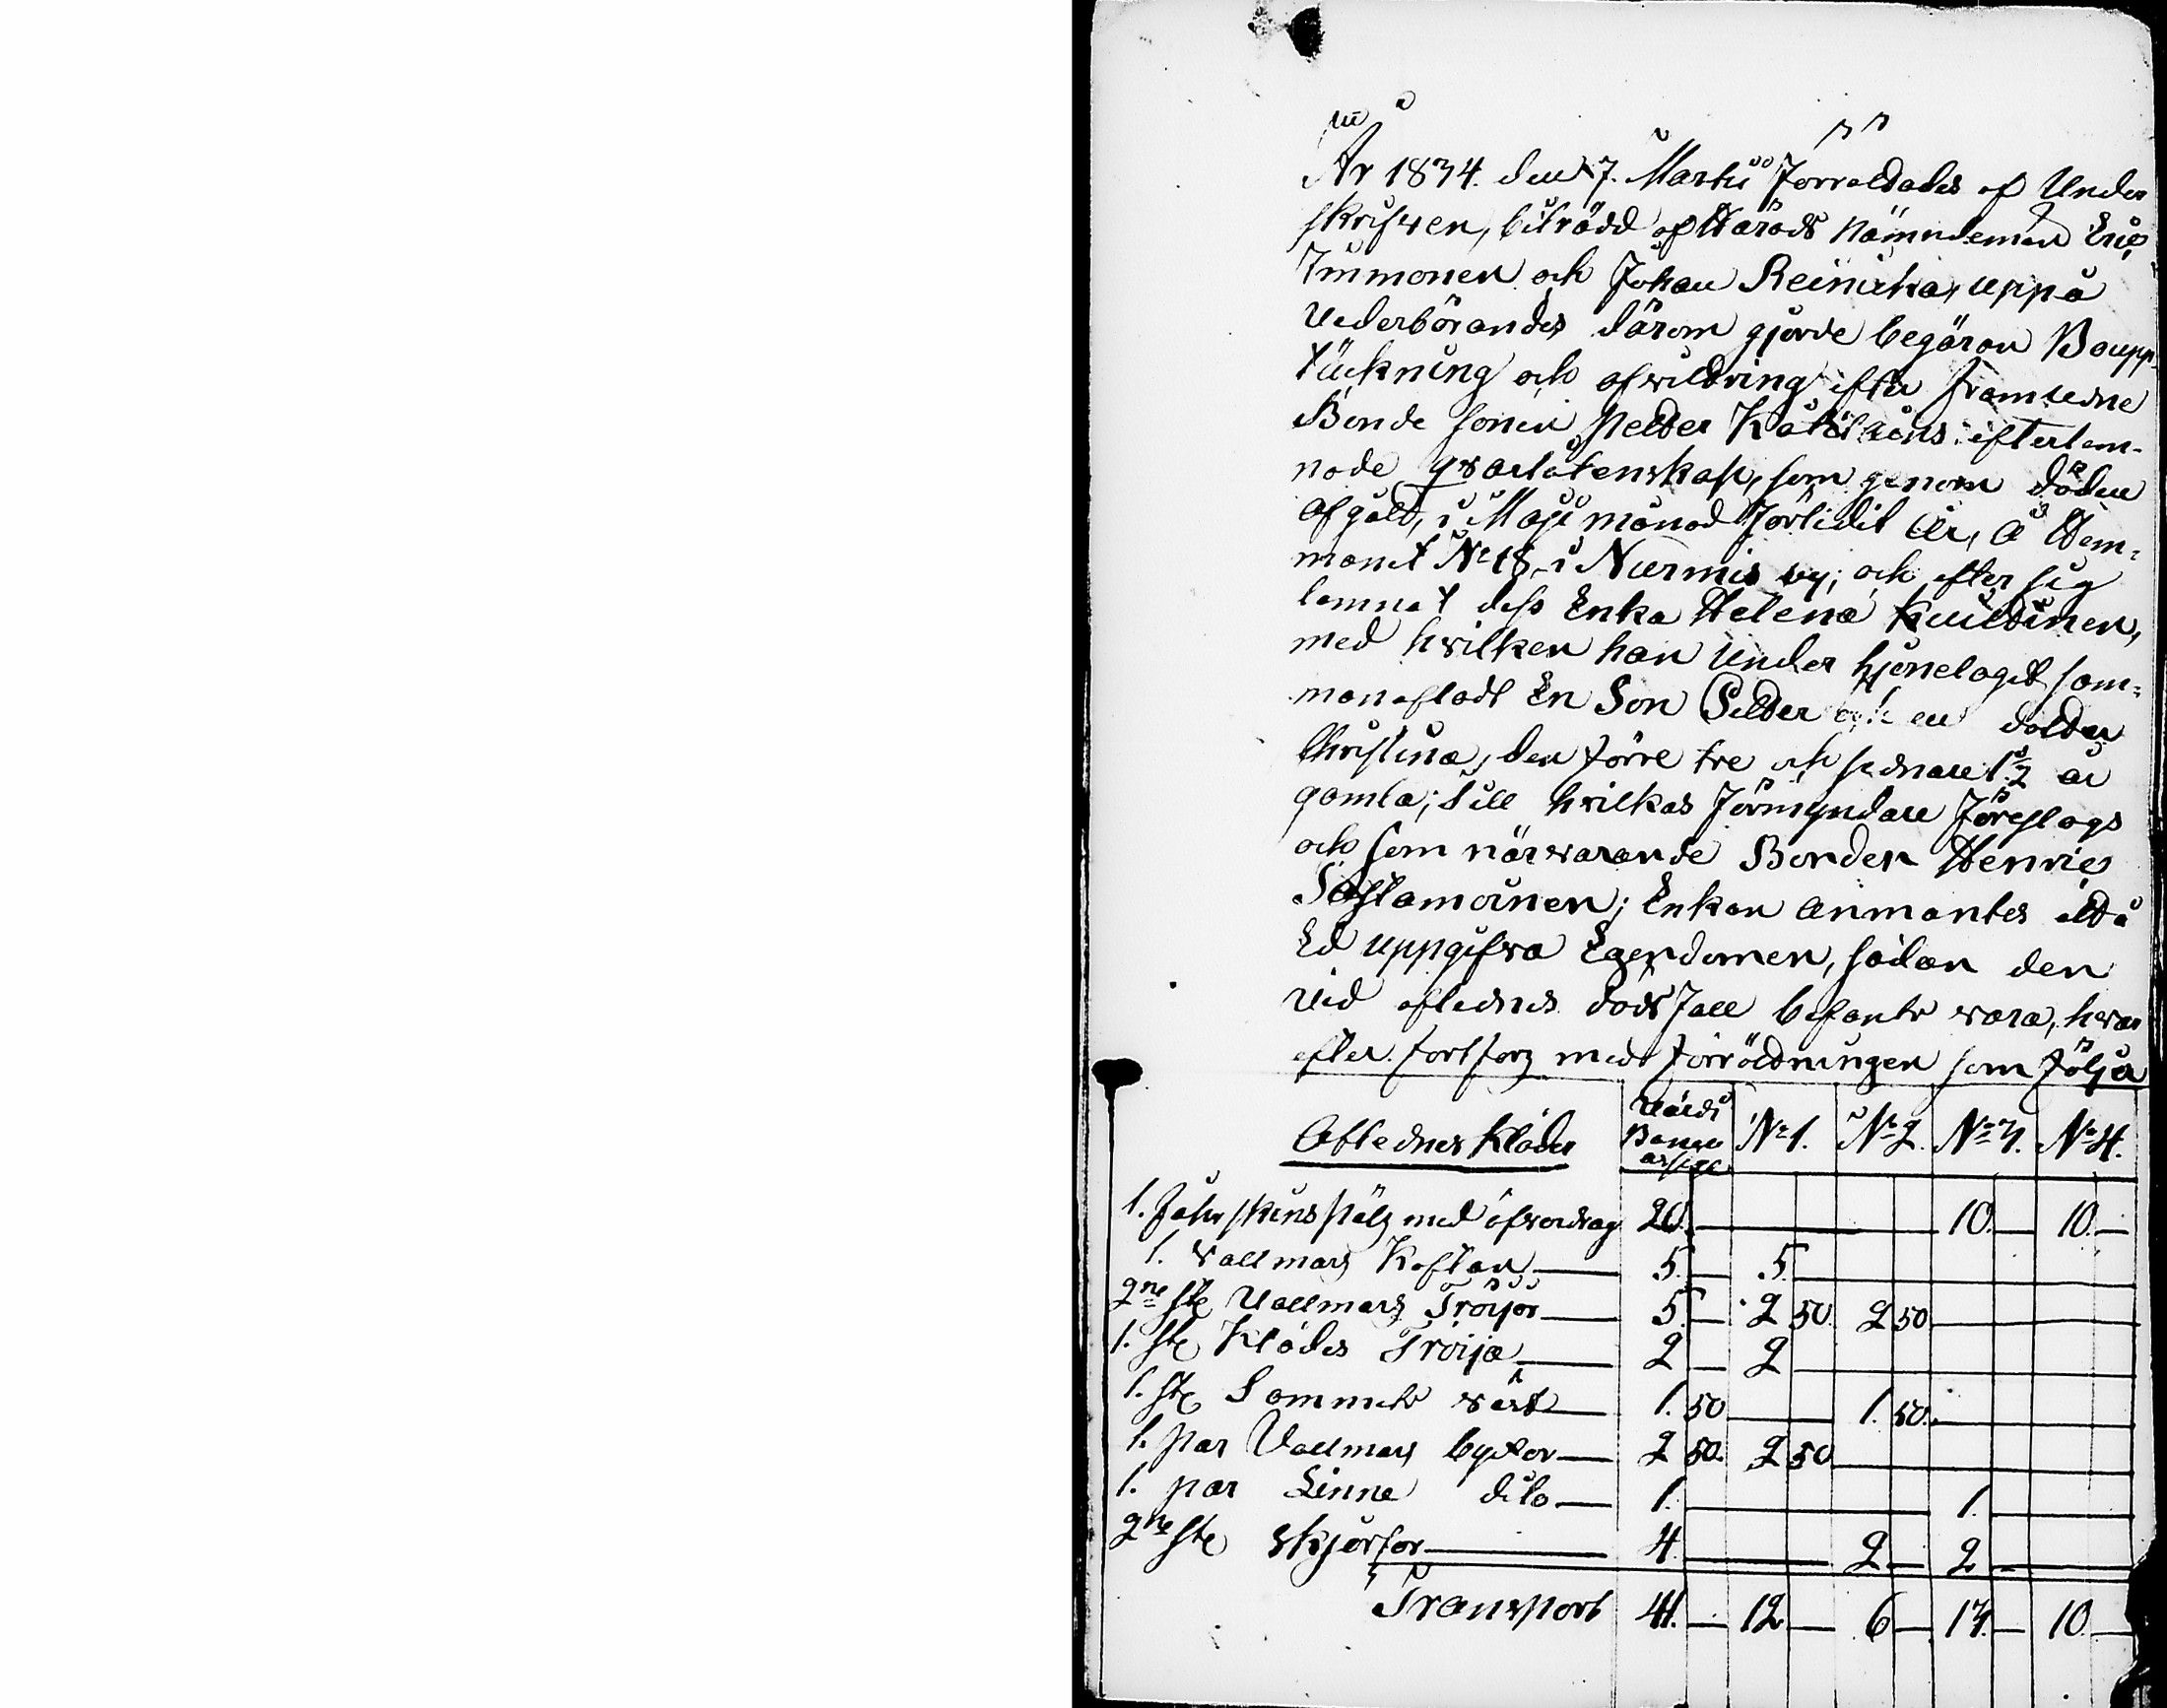 År 1834. den 7. Martii Förrättades af Under
skrifven, biträdd af Härads Nämndemän Eric
Immonen och Johan Reinicka, uppå
Vederbörandes därom gjorde begäran Boupp-
täckning och afvittring efter framledne
Bonde sonen Petter Kåkölains efterlem-
nade qvarlåtenskap, som genom döden
afgått, i Maji månad förlidit år, å Hem-
manet No 18, i Nurmis by; och efter sig
lemnat dess Enka Helena Kuittinen,
med hvilken han under hjonelaget sam-
manaflat En Son Petter och en dotter
Christina, den förre tre och sednare 1½ år
gamla; till hvilkas Förmyndare Föreslogs
och som närvarande Bonden Henric
Sastamoinen; Enkan anmantes att å
Ed uppgifva Egendomen, sådan den
vid aflednes dödsfall befants vara, hvar
efter fortforz med Förrättningen som följer
Aflednes Kläder | Värdi Banco assign | No 1. | No 2. | No 3. | No 4.
1. Fåhrskins pälz med öfverdrag | 20. | | | 10.— | 10.—
1. vallmars Kaftan | 5.— | 5.
2ne st. Vallmars Tröijor | 5.— | 2 50. | 2 50
1. st. Klädes Tröija | 2 — | 2
1. st. Sammets väst | 1. 50 | | 1. 50.
1. par Vallmars byxor | 2 50. | 2 50
1. par Linne dito | 1. | | | 1.
2ne st. skjortor | 4. | | 2 — | 2 —
Transport | 41.— | 12 — | 6 — | 13.— | 10.—